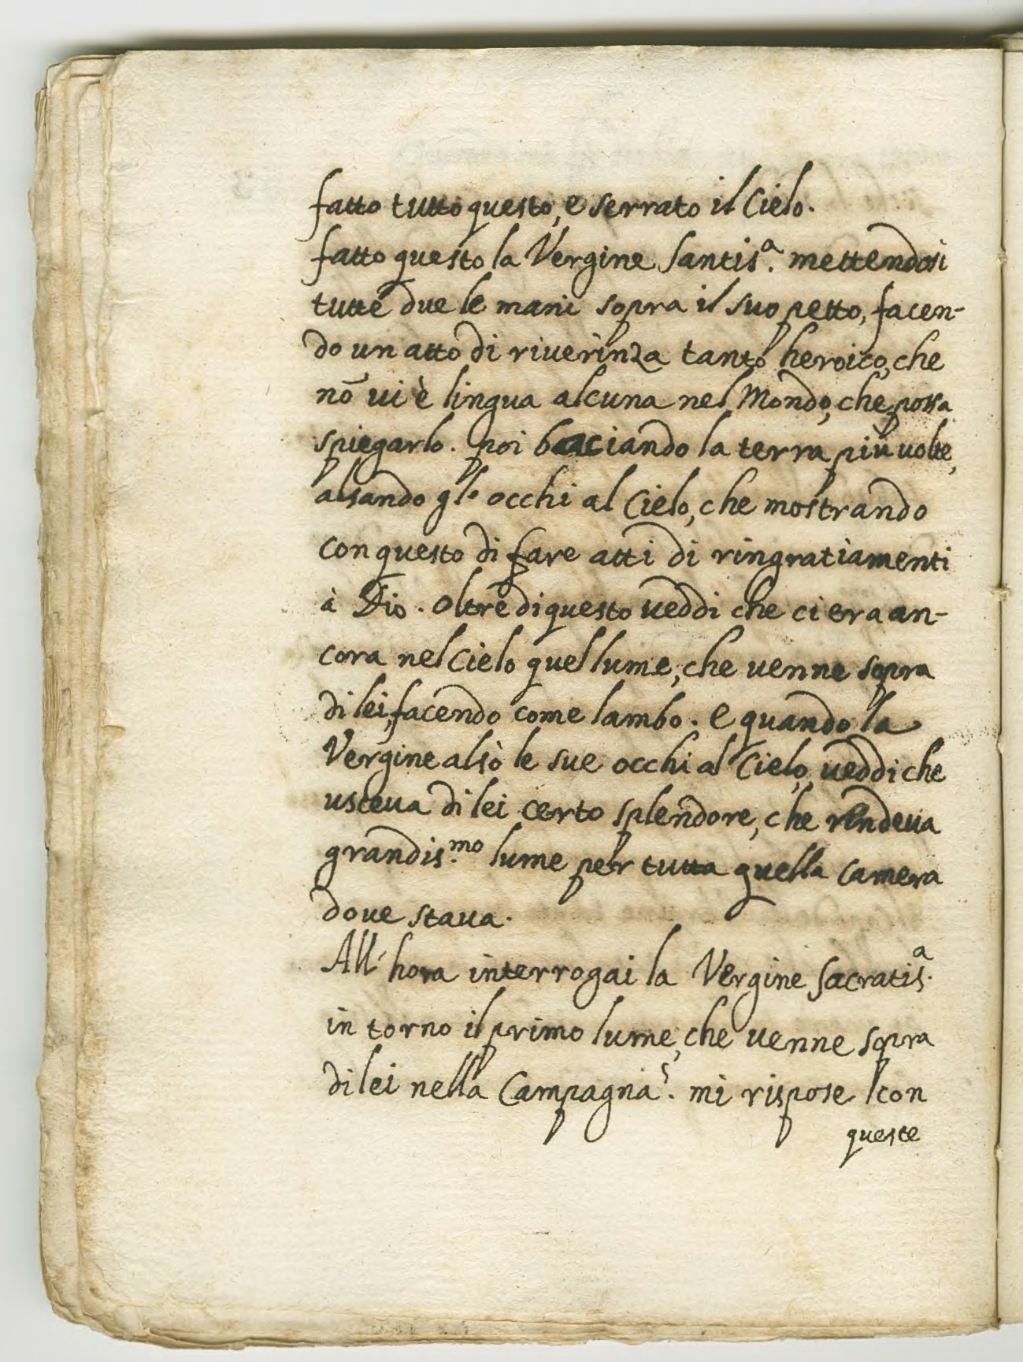 fatto tutto questo, e serrato il Cielo.
fatto questo la Vergine Santis.ª mettendosi
tutte due le mani sopra il suo petto, facen-
do un atto di riverinza tanto heroico, che
nõ vi è lingua alcuna nel Mondo, che possa
spiegarlo. poi baciando la terra più volte,
alsando gl'occhi al Cielo, che mostrando
con questo di fare atti di ringratiamenti
à Dio. Oltre di questo veddi che ci era an-
cora nel Cielo quel lume, che venne sopra
di lei, facendo come lambo. e quando la
Vergine alsò le sue occhi al Cielo, veddi che
usceva di lei certo splendore, che rendeva
grandis.mo lume per tutta quella Camera
dove stava.
All'hora interrogai la Vergine Sacratis.ª
in torno il primo lume, che venne sopra
di lei nella Campagna. mi rispose con
queste